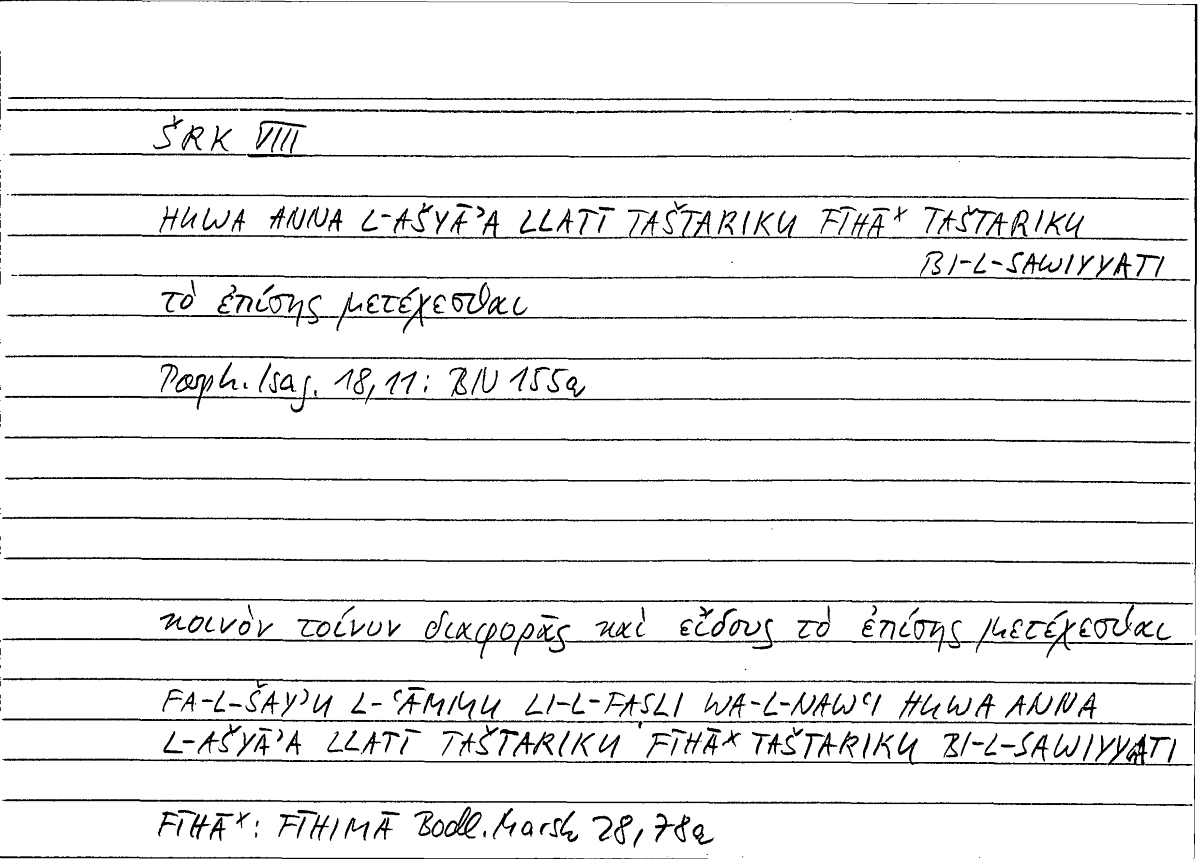 ŠRK VIII
HUWA ANNA L-AŠYĀʾA LLATĪ TAŠTARIKU FĪHĀˣ TAŠTARIKU
BI-L-SAWIYYATI
τὸ ἐπίσης μετέχεσθαι
Porph. Isag. 18,11: BN 155a
κοινὸν τοίνυν διαφορᾶς καὶ εἴδους τὸ ἐπίσης μετέχεσθαι
FA-L-ŠAYʾU L-ʿĀMMU LI-L-FASLI WA-L-NAWʿI HUWA ANNA
L-AŠYĀʾA LLATĪ TAŠTARIKU FĪHĀˣ TAŠTARIKU BI-L-SAWIYYATI
FĪHĀˣ: FĪHIMĀ Bodl. Marsh 28,78a